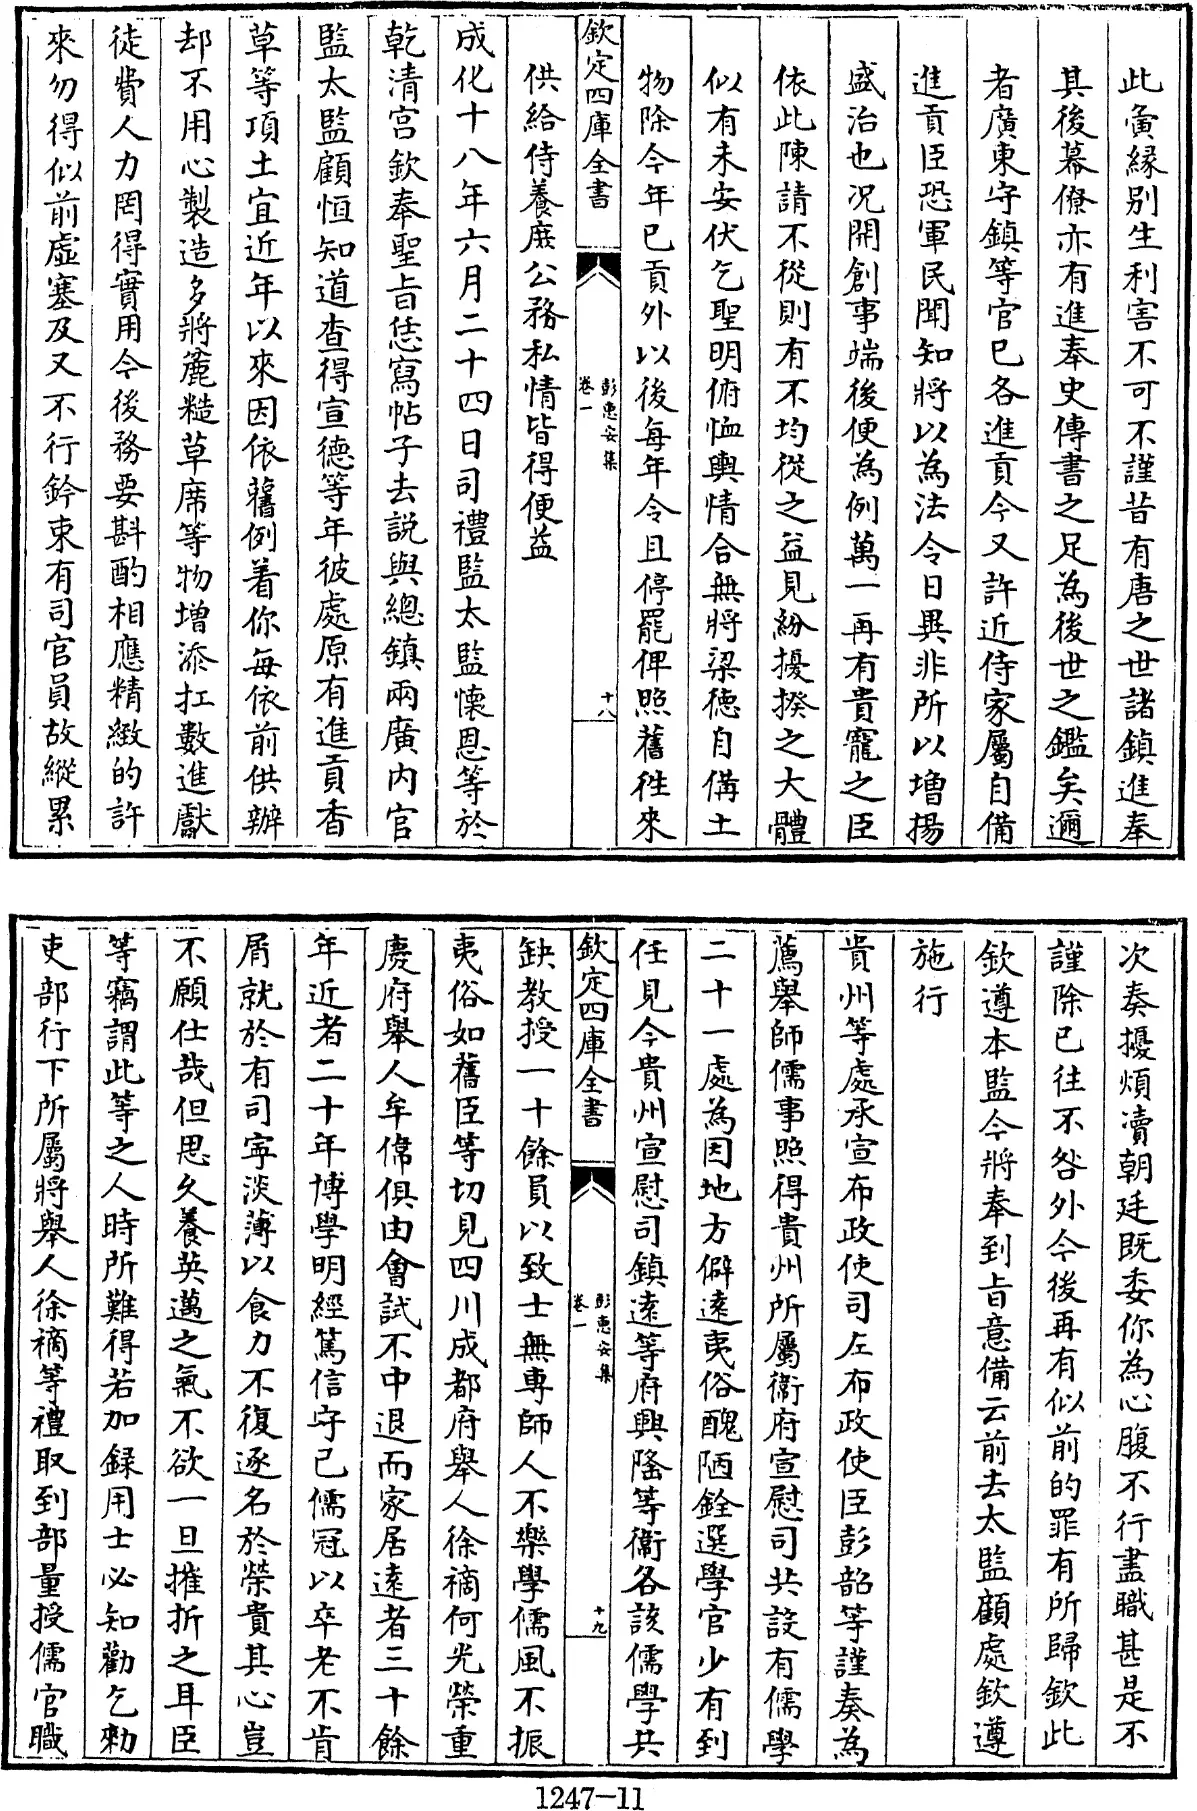 此夤縁别生利害不可不謹昔有唐之世諸鎮進奉
其後幕僚亦有進奉史傳書之足為後世之鑑矣邇
者廣東守鎮等官已各進貢今又許近侍家屬自備
進貢臣恐軍民聞知將以為法令日異非所以增揚
盛治也况開創事端後便為例萬一再有貴寵之臣
依此陳請不從則有不均從之益見紛擾揆之大體
似有未安伏乞聖明俯恤輿情合無將梁徳自備土
物除今年已貢外以後每年令且停罷俾照舊徃來
欽定四庫全書
彭惠安集
卷一
十八
供給侍養庶公務私情皆得便益
成化十八年六月二十四日司禮監太監懐恩等於
乾清宫欽奉聖旨恁寫帖子去説與總鎮兩廣内官
監太監顧恒知道查得宣德等年彼處原有進貢香
草等項土宜近年以來因依舊例着你每依前供辦
却不用心製造多將麄糙草席等物增添扛數進獻
徒費人力罔得實用今後務要斟酌相應精緻的許
來勿得似前虛塞及又不行鈐束有司官員故縱累
次奏擾煩凟朝廷既委你為心腹不行盡職甚是不
謹除已往不咎外今後再有似前的罪有所歸欽此
欽遵本監今將奉到旨意備云前去太監顧處欽遵
施行
貴州等處承宣布政使司左布政使臣彭韶等謹奏為
薦舉師儒事照得貴州所屬衞府宣慰司共設有儒學
二十一處為因地方僻逺夷俗醜陋銓選學官少有到
任見今貴州宣慰司鎮逺等府興隆等衞各該儒學共
欽定四庫全書
彭惠安集
卷一
十九
缺教授一十餘員以致士無專師人不樂學儒風不振
夷俗如舊臣等切見四川成都府舉人徐禴何光榮重
慶府舉人牟俻俱由會試不中退而家居逺者三十餘
年近者二十年博學明經篤信守已儒冠以卒老不肯
屑就於有司寜淡薄以食力不復逐名於榮貴其心豈
不願仕哉但思久養英邁之氣不欲一旦摧折之耳臣
等竊謂此等之人時所難得若加録用士必知勸乞勑
吏部行下所屬將舉人徐禴等禮取到部量授儒官職
1247-11